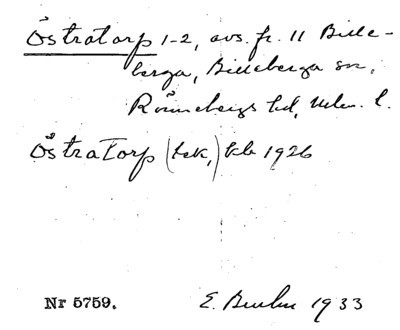 Östratorp 1-2, avs. fr. 11 Bille-
berga, Billeberga sn,
Rönnebergs hd, Mlm. l.
Östratorp (tek,) kb 1926
Nr 5759. E. 1933